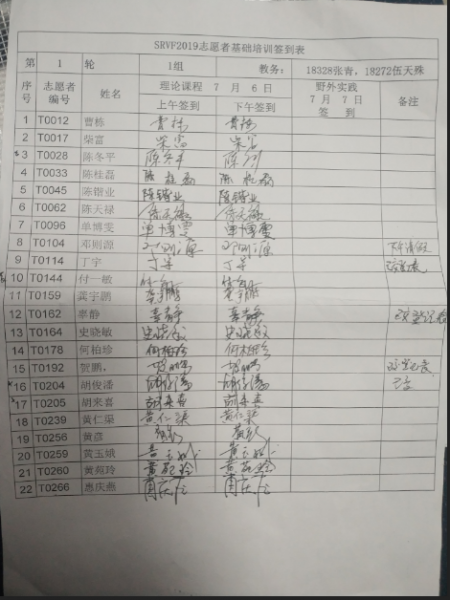 SRVF2019志愿者基础培训签到表
第 1 轮 1组 教务: 18328张青, 18272伍天殊
序号 志愿者编号 姓名 理论课程 7 月 6 日 野外实践 7 月 7 日 备注
上午签到 下午签到 签 到
1 T0012 曹栋 曹栋 曹栋
2 T0017 柴富 柴富 柴富
3 T0028 陈冬平 陈冬平
4 T0033 陈桂磊 陈桂磊 陈桂磊
5 T0045 陈锴业 陈锴业 陈锴业
6 T0062 陈天禄
7 T0096 单博雯 单博雯 单博雯
8 T0104 邓则源 邓则源 邓则源
9 T0114 丁宇 丁宇 丁宇
10 T0144 付一敏
11 T0159 龚宇鹏
12 T0162 辜静 辜静 辜静
13 T0164 史晓敏 史晓敏 史晓敏
14 T0178 何柏珍 何柏珍 何柏珍
15 T0192 贺鹏,
16 T0204 胡俊潘
17 T0205 胡来喜 胡来喜 胡来喜
18 T0239 黄仁渠 黄仁渠 黄仁渠
19 T0256 黄彦
20 T0259 黄玉娥
21 T0260 黄苑玲 黄苑玲 黄苑玲
22 T0266 惠庆燕